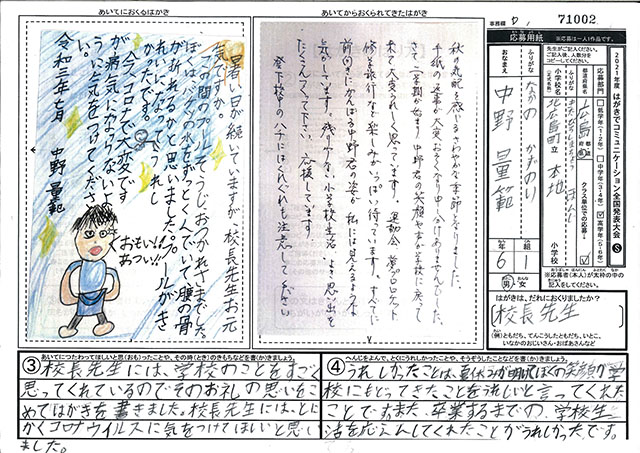 あいてにおくるはがき
暑い日が続いていますが、校長先生お元
気ですか。
この間のプールそうじおつかれさまでした。
ぼくはバケツの水をずっとくんでいて腰の骨
が折れるかと思いました。プールがき
れいになってうれし
かったです。
今、コロナで大変です
が病気にならないよ
うに気をつけてくださ
い。
令和三年七月 中野 量範
おもい!!
あつい!!
あいてからおくられてきたはがき
秋の気配を感じるさわやかな季節となりました。
手紙の返事が大変おそくなり申し分けありませんでした。
さて二学期が始まり中野君の笑顔や声が学校に戻って
来て大変うれしく思っています。運動会、夢プロジェクト
修学旅行など楽しみがいっぱい待っています。すべてに
前向きにがんばる中野君の姿が私には見えるようで
気がします。残り少ない小学校生活、よき思い出を
たくさんつくって下さい。応援しています。
登下校中のハチにはくれぐれも注意してください
事務欄
71002
2021年度 はがきでコミュニケーション全国発表大会 S
応募用紙
※応募は一人1作品です。
先生がご記入ください。
ご記入後、人数分を
コピーしてください。
応募部門
低学年(1・2年)
中学年(3・4年)
高学年(5・6年)
都道府県名
広島
クラス単位での応募
ふりがな
小学校名
(正式名称)
北広島町立 本地
小学校
ふりがな
なかの かずのり
おなまえ
中野 量範
6
年
1
組
男・女
※応募者(本人)が太枠の中の
記入をしてください。
はがきは、だれにおくりましたか?
校長先生
(例)ともだち、てんこうしたともだち、いとこ、
いなかのおじいさん・おばあさんなど
③
あいてにつたわってほしいと思(おも)ったことや、その時(とき)のきもちなどを書(か)きましょう。
校長先生には、学校のことをすごく
思ってくれているのでそのお礼の思いをこ
めてはがきを書きました。校長先生には、とに
かくコロナウイルスに気をつけてほしいと思い
ました。
④
へんじをよんで、とくにうれしかったことや、そうぞうしたことなどを書(か)きましょう。
うれしかったことは、夏休みが明けぼくの笑顔が学
校にもどってきたことをうれしいと言ってくれた
ことです。また、卒業するまでの、学校生
活を応えんしてくれたことがうれしかったです。